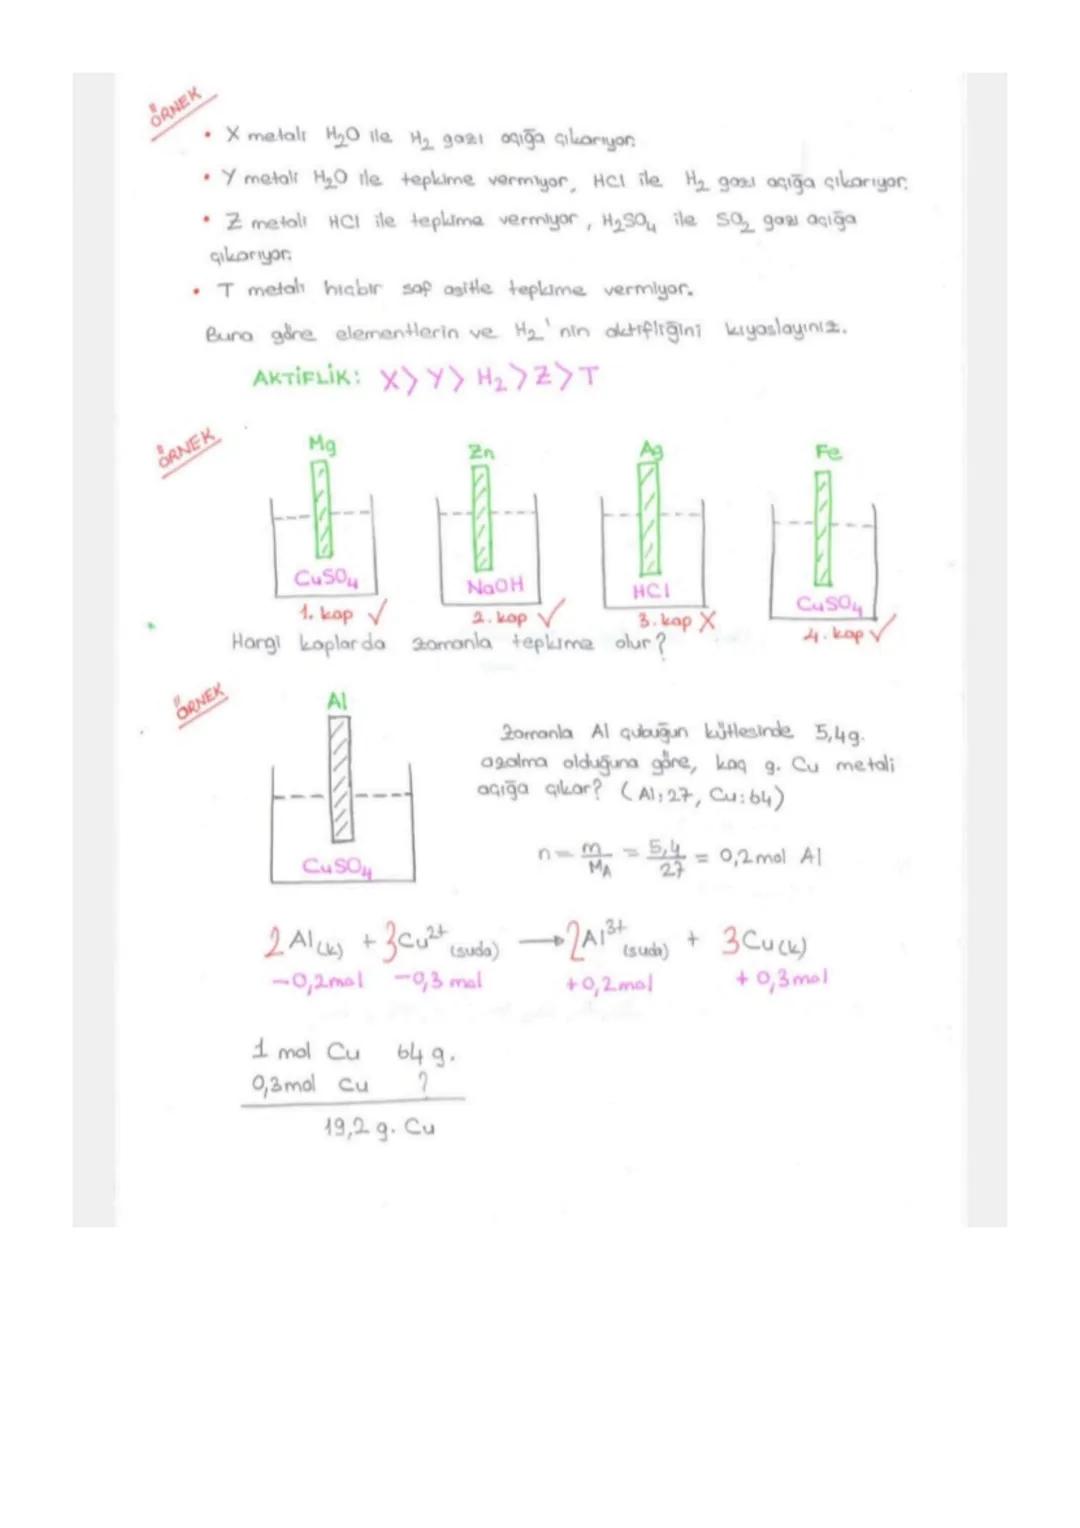 ÖRNEK
• X metali H₂O ile H₂ gazı açığa çıkarıyor.
• Y metali H₂O ile tepkime vermiyor, HCl ile H₂ gazı açığa çıkarıyor.
• Z metali HCl ile tepkime vermiyor, H₂SO₄ ile SO₂ gazı açığa
çıkarıyor.
• T metali hiçbir saf asitle tepkime vermiyor.
Buna göre elementlerin ve H₂'nin aktifliğini kıyaslayınız.
AKTİFLİK: X > Y > H₂ > Z > T
ÖRNEK
Mg Zn Ag Fe
CuSO₄ NaOH HCl CuSO₄
1. kap ✓ 2. kap ✓ 3. kap X 4. kap ✓
Hangi kaplarda zamanla tepkime olur?
ÖRNEK
Al
CuSO₄
Zamanla Al çubuğun kütlesinde 5,4g.
azalma olduğuna göre, kaç g. Cu metali
açığa çıkar? (Al: 27, Cu: 64)
n = m/MA = 5,4/27 = 0,2 mol Al
2Al(k) + 3Cu²⁺(suda) → 2Al³⁺(suda) + 3Cu(k)
-0,2mol -0,3 mol +0,2mol +0,3mol
1 mol Cu 64 g.
0,3mol Cu ?
19,2 g. Cu